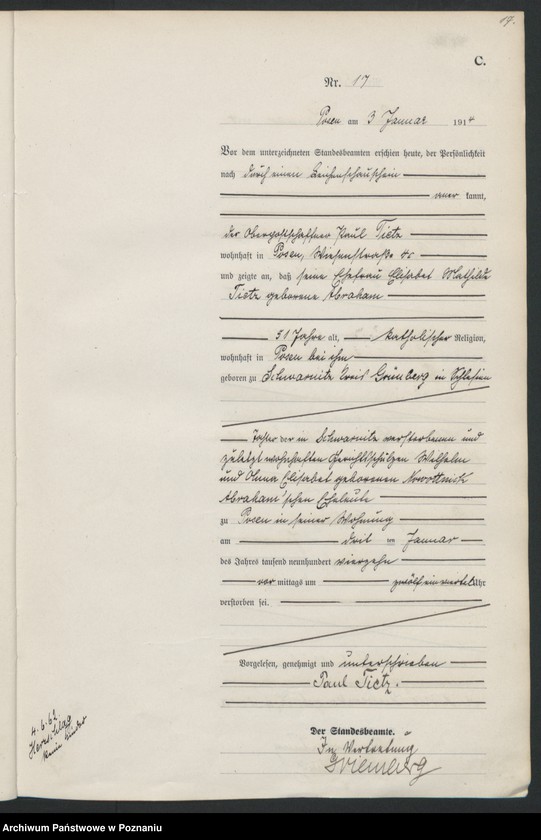 19.
C.
Nr. 17
Posen am 3 Januar 1914
Vor dem unterzeichneten Standesbeamten erschien heute, der Persönlichkeit
nach durch einen Leichenschauschein
kannt,
der Oberpostschaffner Paul Tietz
wohnhaft in Posen, Wiesenstraße
und zeigte an, daß seine Ehefrau Elisabet Mathilde
Tietz geborene Abraham
51 Jahre alt, katholischer Religion,
wohnhaft in Posen bei ihm
geboren zu Schwarmitz Kreis Grünberg in Schlesien
Tochter der in Schwarmitz verstorbenen und
zuletzt wohnhaften Gerichtsschulzen Wilhelm
und Anna Elisabet geborenen
Abraham'schen Eheleute
zu Posen in seiner Wohnung
am dritten Januar
des Jahres tausend neunhundert vierzehn
vor mittags um zwölf einviertel Uhr
verstorben sei.
Vorgelesen, genehmigt und unterschrieben
Paul Tietz.
Der Standesbeamte.
In Vertretung
4.6.62
keine Kinder
Archiwum Państwowe w Poznaniu